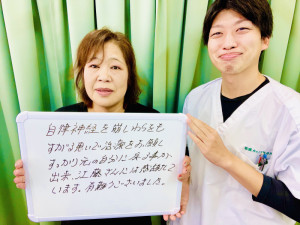 自律神経を崩しわらをも
すがる思いで治療をお願し
すっかり元の自分に戻る事が
出来、江藤さんには感謝して
います。有難うございました。